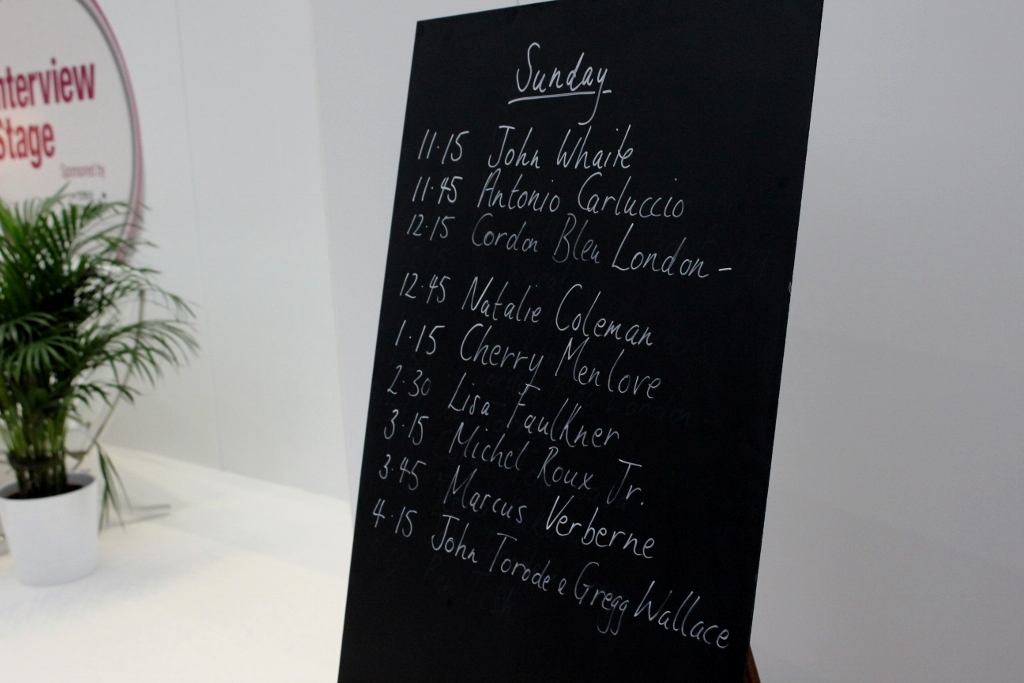 nterview
Stage
Sponsored by
Sunday
11.15 John Whaite
11.45 Antonio Carluccio
12.15 Cordon Bleu London -
12.45 Natalie Coleman
1.15 Cherry Menlove
2.30 Lisa Faulkner
3.15 Michel Roux Jr.
3.45 Marcus Verberne
4.15 John Torode & Gregg Wallace